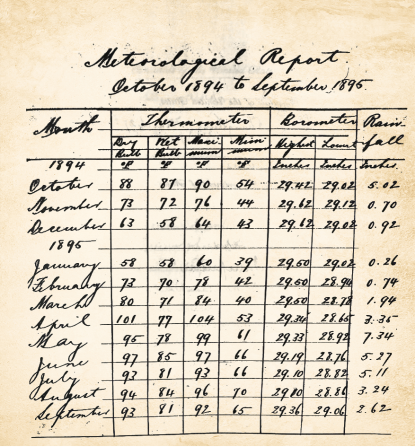 Meteorological Report
October 1894 to September 1895
Month Thermometer Borometer Rain-fall
Dry Bulb Wet Bulb Maximum Minimum Highest Lowest
1894 °F °F °F °F Inches Inches Inches
October 88 87 90 54 29.42 29.02 5.02
November 73 72 76 44 29.62 29.12 0.70
December 63 58 64 43 29.62 29.02 0.92
1895
January 58 58 60 39 29.50 29.02 0.26
February 73 70 78 42 29.50 28.94 0.74
March 80 71 84 40 29.50 28.78 1.94
April 101 77 104 53 29.34 28.65 3.35
May 95 78 99 61 29.33 28.92 7.34
June 97 85 97 66 29.19 28.76 5.27
July 93 81 93 66 29.10 28.82 5.11
August 94 84 96 70 28.86 3.24
September 93 81 92 65 29.36 29.06 2.62